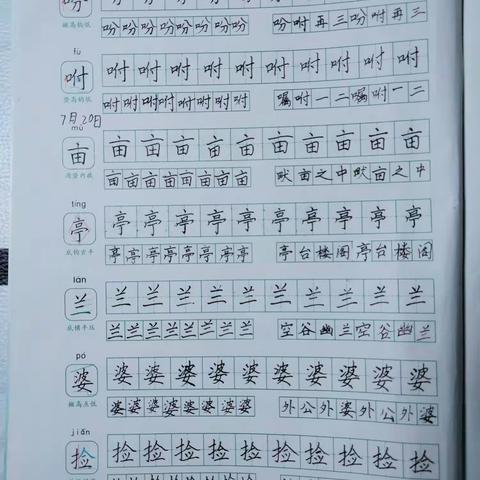 吩 吩 吩 吩 吩 吩 吩 吩 吩 咐 再 三 吩 咐 再 三
fù
咐 咐 咐 咐 咐 咐 咐 咐 咐 咐 咐
竖高钩低 咐 咐 咐 咐 咐 咐 咐 咐 嘱 咐 一 二 嘱 咐 一 二
7月20日
mǔ
亩 亩 亩 亩 亩 亩 亩 亩 亩 亩 亩
亩 亩 亩 亩 亩 亩 亩 亩 畎 亩 之 中 畎 亩 之 中
tíng
亭 亭 亭 亭 亭 亭 亭 亭 亭 亭 亭
亭 亭 亭 亭 亭 亭 亭 亭 亭 台 楼 阁 亭 台 楼 阁
lán
兰 兰 兰 兰 兰 兰 兰 兰 兰 兰 兰
底横平压 兰 兰 兰 兰 兰 兰 兰 兰 空 谷 幽 兰 空 谷 幽 兰
pó
婆 婆 婆 婆 婆 婆 婆 婆 婆 婆 婆
撇高点低 婆 婆 婆 婆 婆 婆 婆 婆 外 公 外 婆 外 公 外 婆
jiǎn
捡 捡 捡 捡 捡 捡 捡 捡 捡 捡 捡